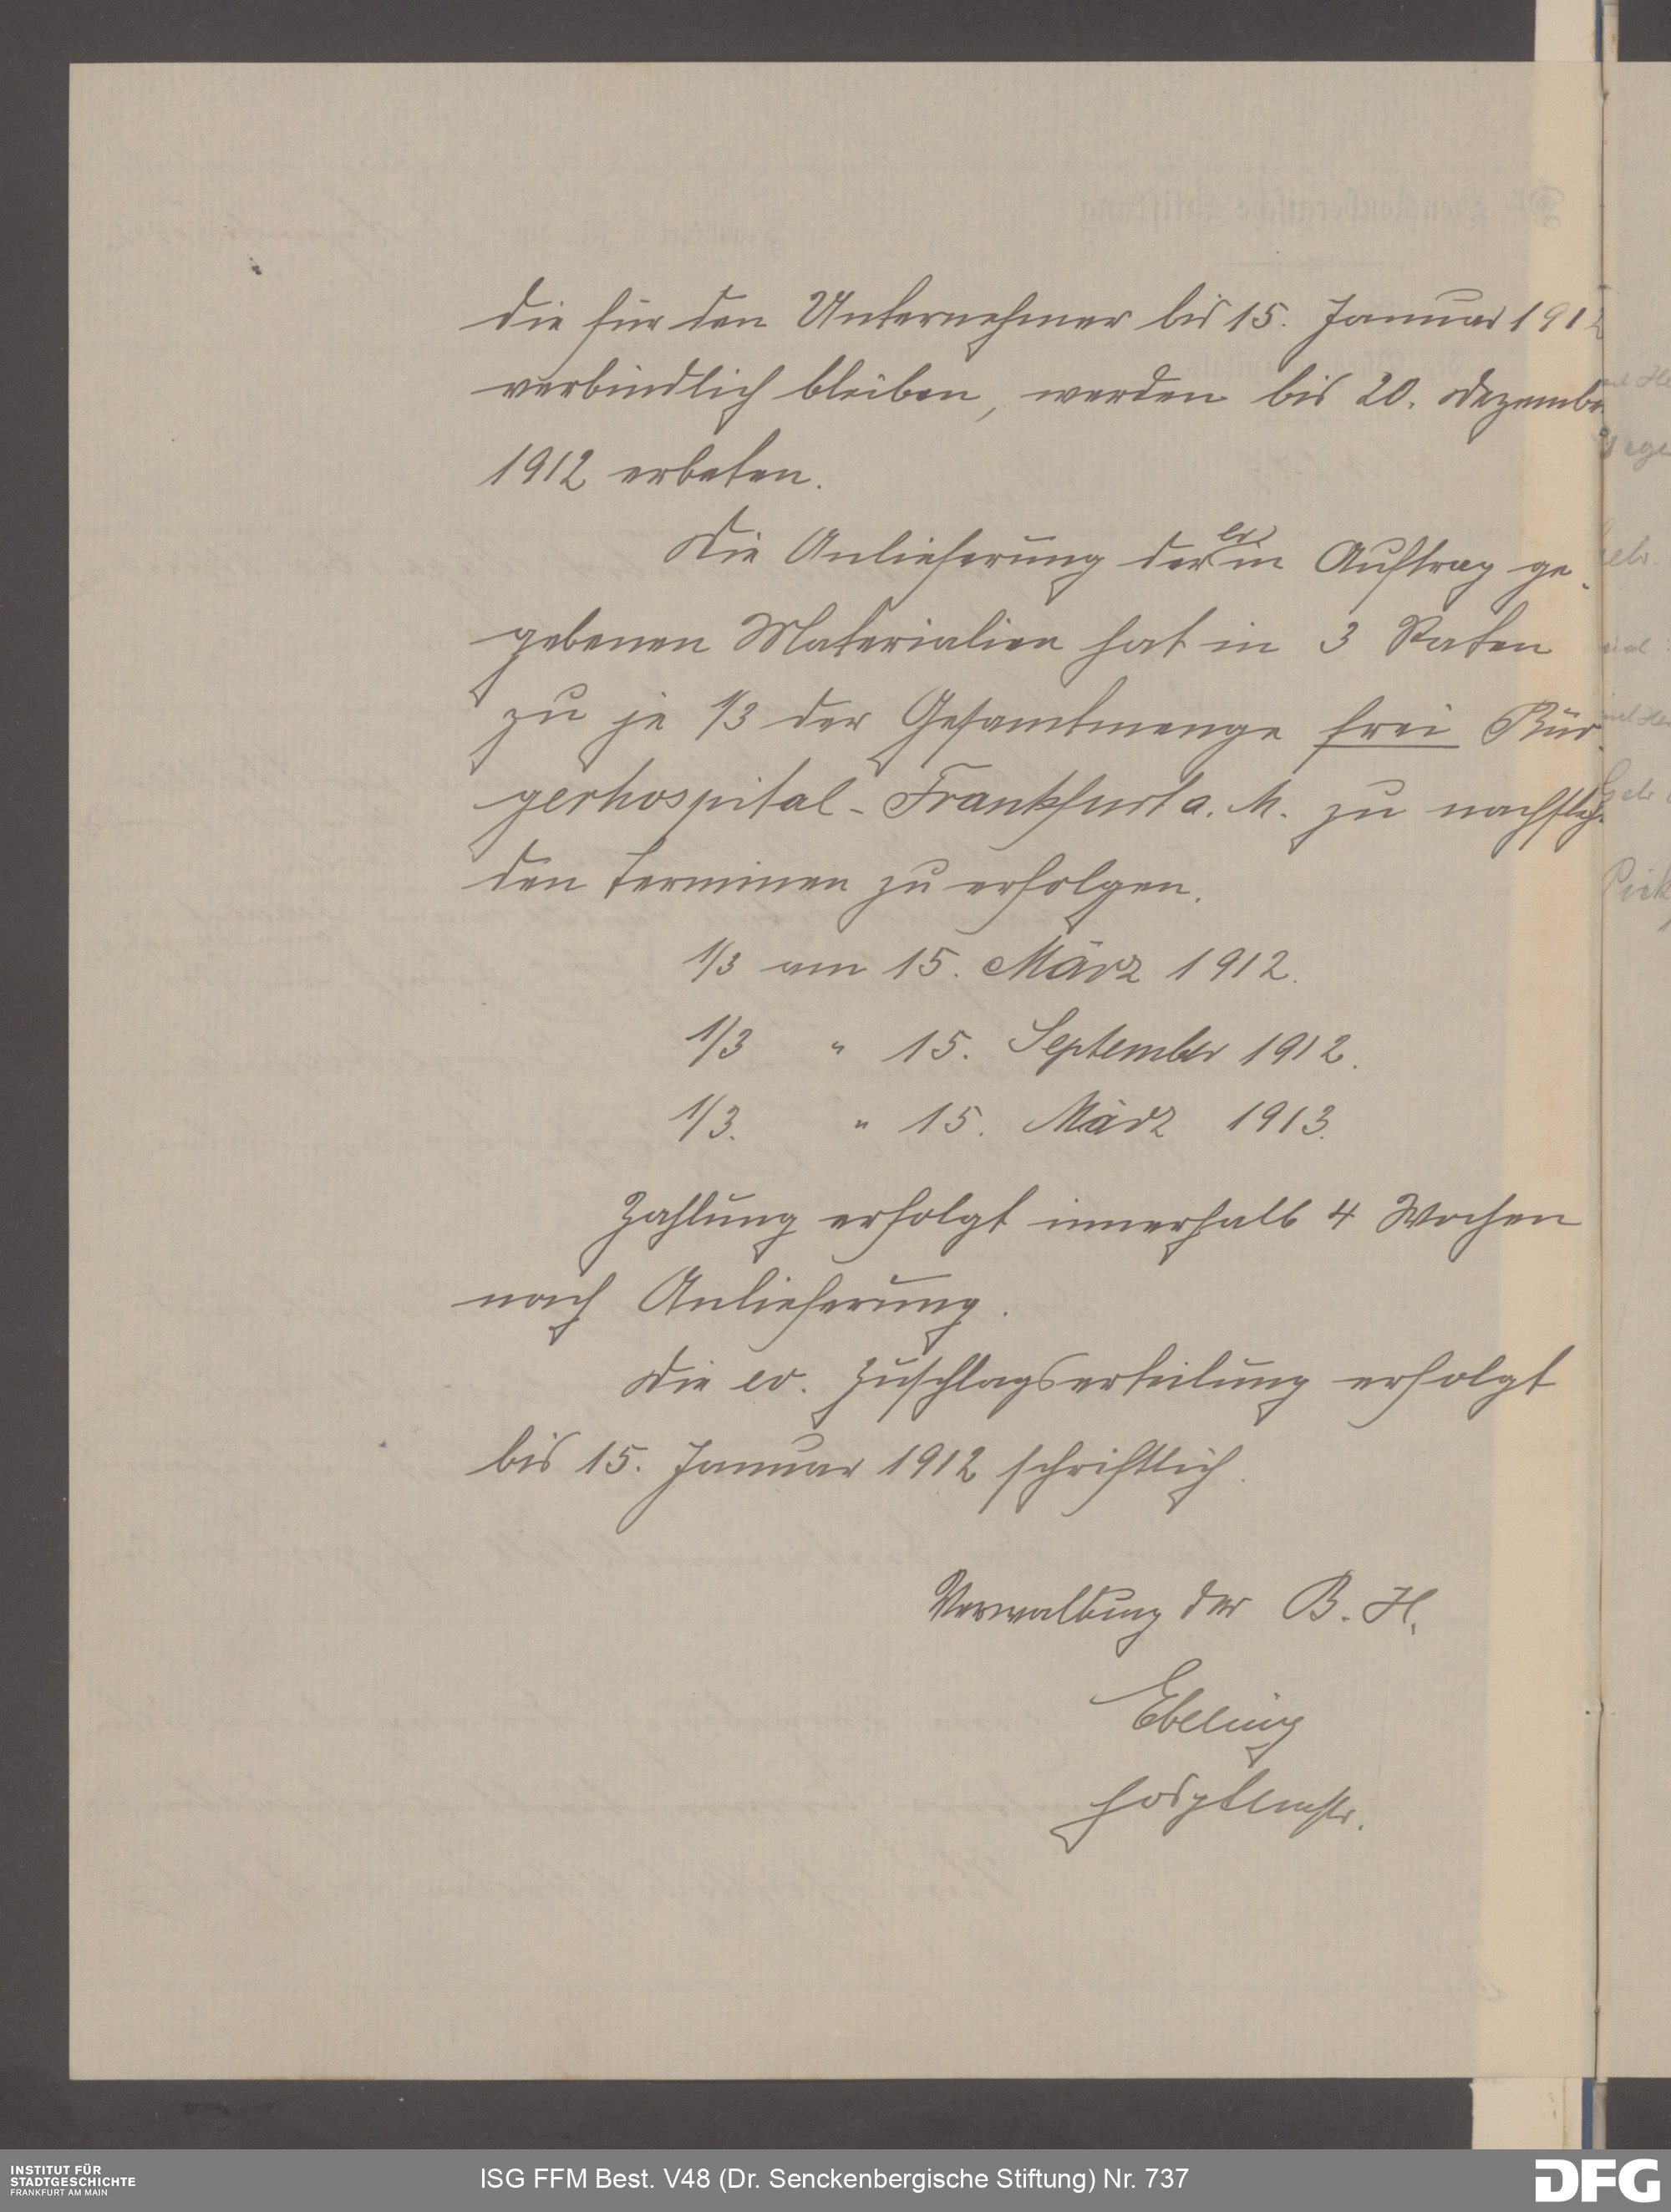 die für den Unternehmer bis 15. Januar 1912
verbindlich bleiben, werden bis 20. Dezembe
1912 erbeten.
Die Anlieferung der ev. in Auftrag ge-
gebenen Materialien hat in 3 Raten
zu je 1/3 der Gesamtmenge frei Bür-
gerhospital - Frankfurt a. M. zu nachsteh-
den Terminen zu erfolgen.
1/3 am 15. März 1912.
1/3 " 15. September 1912.
1/3. " 15. März 1913.
Zahlung erfolgt innerhalb 4 Wochen
nach Anlieferung.
Die ev. Zuschlagserteilung erfolgt
bis 15. Januar 1912 schriftlich.
Verwaltung der B. H.
Ebeling
Hosptlmstr.
INSTITUT FÜR
STADTGESCHICHTE
FRANKFURT AM MAIN
ISG FFM Best. V48 (Dr. Senckenbergische Stiftung) Nr. 737
DFG